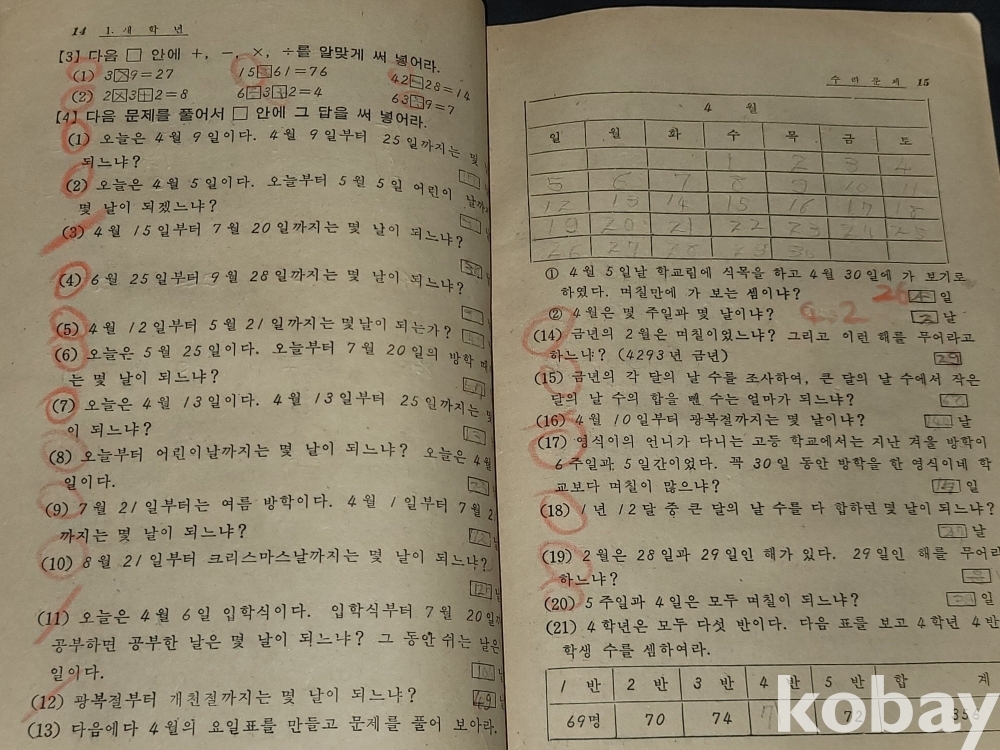 14 1. 새 학 년
[3] 다음 □ 안에 +, −, ×, ÷를 알맞게 써 넣어라.
(1) 3☒9=27 15□61=76 42□28=14
(2) 2☒3⊞2=8 6□3□2=4 63□9=7
[4] 다음 문제를 풀어서 □ 안에 그 답을 써 넣어라.
(1) 오늘은 4월 9일이다. 4월 9일부터 25일까지는 몇
되느냐?
(2) 오늘은 4월 5일이다. 오늘부터 5월 5일 어린이 날까지
몇 날이 되겠느냐?
(3) 4월 15일부터 7월 20일까지는 몇 날이 되느냐?
(4) 6월 25일부터 9월 28일까지는 몇 날이 되느냐?
(5) 4월 12일부터 5월 21일까지는 몇날이 되는가?
(6) 오늘은 5월 25일이다. 오늘부터 7월 20일의 방학
는 몇 날이 되느냐?
(7) 오늘은 4월 13일이다. 4월 13일부터 25일까지는
이 되느냐?
(8) 오늘부터 어린이날까지는 몇 날이 되느냐? 오늘은 4월
일이다.
(9) 7월 21일부터는 여름 방학이다. 4월 1일부터 7월
까지는 몇 날이 되느냐?
(10) 8월 21일부터 크리스마스날까지는 몇 날이 되느냐?
(11) 오늘은 4월 6일 입학식이다. 입학식부터 7월 20일
공부하면 공부한 날은 몇 날이 되느냐? 그 동안 쉬는 날은
일이다.
(12) 광복절부터 개천절까지는 몇 날이 되느냐? 49
(13) 다음에다 4월의 요일표를 만들고 문제를 풀어 보아라.
수 리 문 제 15
4 월
일 월 화 수 목 금 토
1 2 3 4
5 6 7 8 9 10 11
12 13 14 15 16 17 18
19 20 21 22 23 24 25
26 27 28 29 30
① 4월 5일날 학교림에 식목을 하고 4월 30일에 가 보기로
하였다. 며칠만에 가 보는 셈이냐? 26 일
② 4월은 몇 주일과 몇 날이냐? 4.2 날
(14) 금년의 2월은 며칠이었느냐? 그리고 이런 해를 무어라고
하느냐? (4293년 금년) 29
(15) 금년의 각 달의 날 수를 조사하여, 큰 달의 날 수에서 작은
달의 날 수의 합을 뺀 수는 얼마가 되느냐?
(16) 4월 10일부터 광복절까지는 몇 날이냐? 날
(17) 영식이의 언니가 다니는 고등 학교에서는 지난 겨울 방학이
6주일과 5일간이었다. 꼭 30일 동안 방학을 한 영식이네 학
교보다 며칠이 많으냐? 일
(18) 1년 12달 중 큰 달의 날 수를 다 합하면 몇 날이 되느냐?
날
(19) 2월은 28일과 29일인 해가 있다. 29일인 해를 무어라
하느냐?
(20) 5주일과 4일은 모두 며칠이 되느냐? 일
(21) 4학년은 모두 다섯 반이다. 다음 표를 보고 4학년 4반
학생 수를 셈하여라.
1 반 2 반 3 반 4 반 5 반 합 계
69명 70 74 72 356
kobay